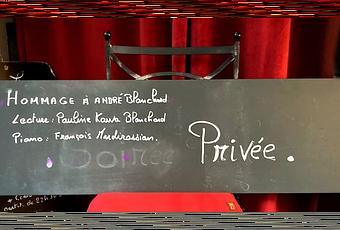 Hommage à André Blanchard
Lecture: Pauline Kawa Blanchard
Piano: François Mardirossian.
Privée.